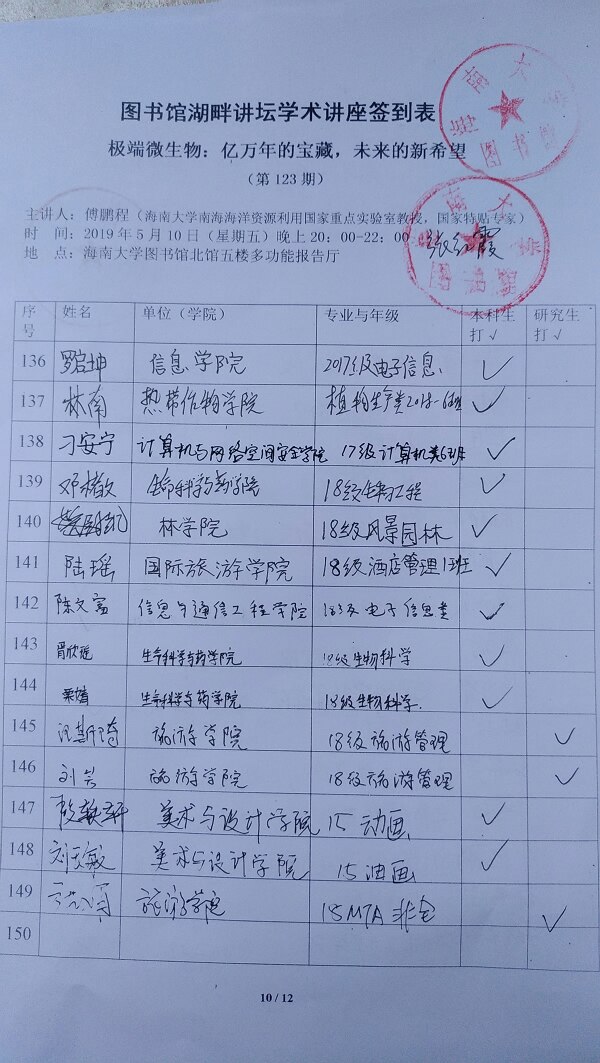 图书馆湖畔讲坛学术讲座签到表
极端微生物：亿万年的宝藏，未来的新希望
（第 123 期）
主讲人：傅鹏程（海南大学南海海洋资源利用国家重点实验室教授，国家特贴专家）
时 间：2019 年 5 月 10 日（星期五）晚上 20：00-22：00
地 点：海南大学图书馆北馆五楼多功能报告厅
张红霞
序号 姓名 单位（学院） 专业与年级 本科生打√ 研究生打√
136 罗启坤 信息学院 2017级电子信息 √
137 林南 热带作物学院 植物生产类2018-6班 √
138 刁安宁 计算机与网络空间安全学院 17级计算机类6班 √
139 邓 生命科学与药学院 18级生物工程 √
140 林学院 18级风景园林 √
141 陆瑶 国际旅游学院 18级酒店管理1班 √
142 陈文富 信息与通信工程学院 18级电子信息类 √
143 胥欣瑶 生命科学与药学院 18级生物科学 √
144 生命科学与药学院 18级生物科学 √
145 旅游学院 18级旅游管理 √
146 刘芸 旅游学院 18级旅游管理 √
147 美术与设计学院 15 动画 √
148 刘 敏 美术与设计学院 15 油画 √
149 旅游学院 18MTA 非全 √
150
10 / 12